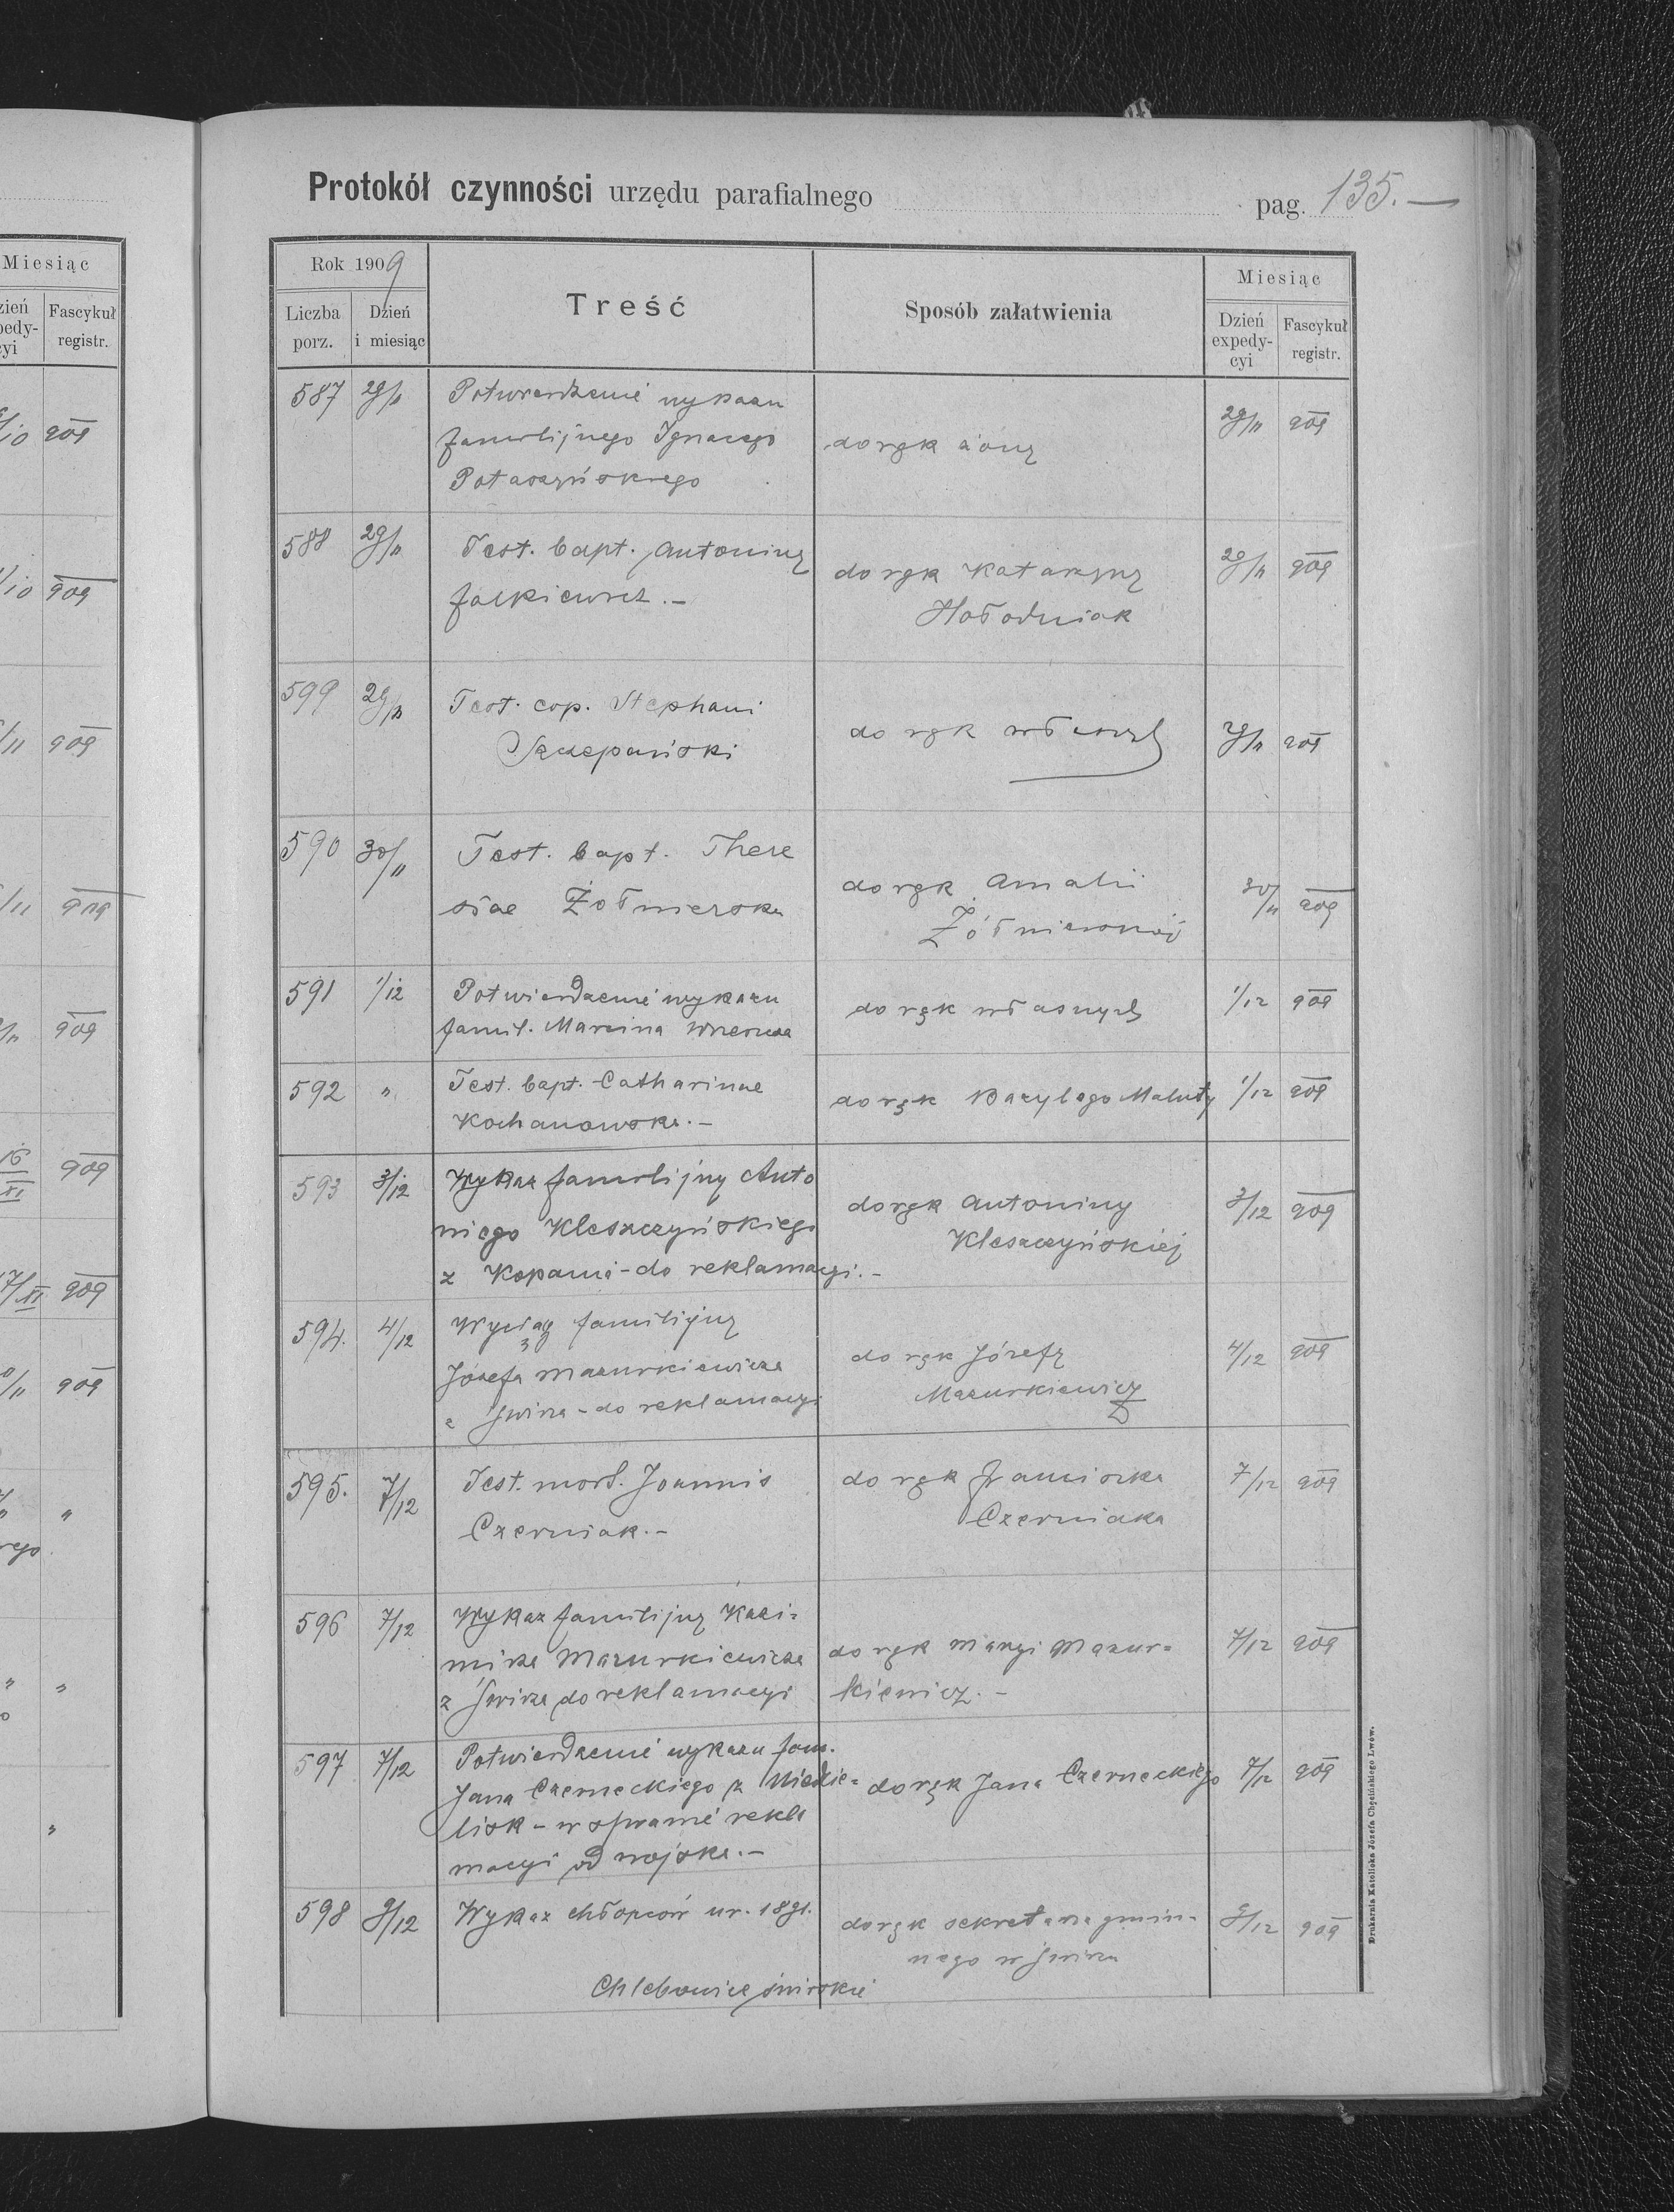 Protokół czynności urzędu parafialnego pag. 135.—
Rok 1909
Liczba porz. Dzień i miesiąc
Treść
Sposób załatwienia
Miesiąc
Dzień expedycyi Fascykuł registr.
587 29/11 Potwierdzenie wykazu
familijnego Ignacego
Potaszyńskiego
do rąk żony
29/11 909
588 29/11 Test. bapt. Antoniny
Falkiewicz.—
do rąk Katarzyny
Hołodniak
29/11 909
599 29/11 Test. cop. Stephani
Szczepański
do rąk własnych
29/11 909
590 30/11 Test. bapt. There
siae Żołnierska
do rąk Amalii
Żółnierskiej
30/11 909
591 1/12 Potwierdzenie wykazu
famil. Marcina
do rąk własnych
1/12 909
592 " Test. bapt. Catharinae
Kochanowska.—
do rąk Bazylego Maluty
1/12 909
593 3/12 Wykaz familijny Anto
niego Kleszczyńskiego
z Kopania - do reklamacyi.—
do rąk Antoniny
Kleszczyńskiej
3/12 909
594. 4/12 Wyciąg familijny
Józefa Mazurkiewicza
z Świrza - do reklamacyi
do rąk Józefy
Mazurkiewicz
4/12 909
595. 7/12 Test. mort. Joannis
Czerniak.—
do rąk Franciszka
Czerniaka
7/12 909
596 7/12 Wykaz familijny Kazi=
mirza Mazurkiewicza
z Świrza do reklamacyi
do rąk Maryi Mazur=
kiewicz.—
7/12 909
597 7/12 Potwierdzenie wykazu fam.
Jana Czerneckiego z Niedzie=
lisk - w sprawie rekla
macyi od wojska.—
do rąk Jana Czerneckiego
7/12 909
598 9/12 Wykaz chłopców ur. 1891.
Chlebowice świrskie
do rąk sekretarza gmin=
nego w Świrzu
9/12 909
Drukarnia Katolicka Józefa Chęcińskiego Lwów.
Miesiąc
Fascykuł
registr.
909
909
909
909
909
909
909
909